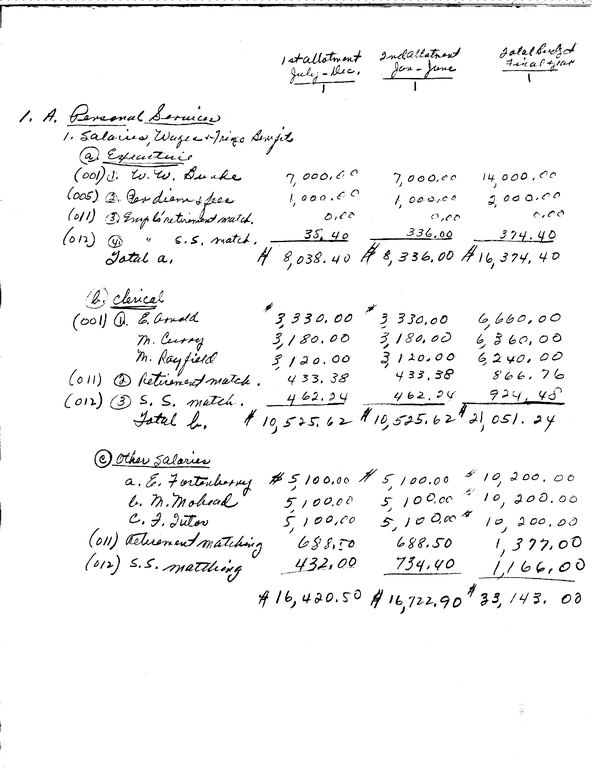 1st allotment 2nd allotment Total Budget
July-Dec. Jan-June Fiscal Year
1 1 1
1. A. Personal Services
1. Salaries, Wages & Fringe Benefits
(a) Executive
(001) (1). W. W. Burke 7,000.00 7,000.00 14,000.00
(005) (2). Per diem & fees 1,000.00 1,000.00 2,000.00
(011) (3) Empl's retirement match. 0.00 0.00 0.00
(012) (4) " S.S. match. 35.40 336.00 374.40
Total a. $ 8,038.40 $ 8,336.00 $ 16,374.40
(b.) Clerical
(001) (1). E. Arnold $ 3,330.00 $ 3,330.00 6,660.00
M. Curry 3,180.00 3,180.00 6,360.00
M. Rayfield 3,120.00 3,120.00 6,240.00
(011) (2) Retirement match. 433.38 433.38 866.76
(012) (3) S. S. match. 462.24 462.24 924.48
Total b. $ 10,525.62 $ 10,525.62 $ 21,051.24
(c) Other Salaries
a. E. Fortenberry $ 5,100.00 $ 5,100.00 $ 10,200.00
b. M. 5,100.00 5,100.00 $ 10,200.00
C. J. Tutor 5,100.00 5,100.00 $ 10,200.00
(011) Retirement matching 688.50 688.50 1,377.00
(012) S.S. matching 432.00 734.40 1,166.00
$ 16,420.50 $ 16,722.90 $ 33,143.00